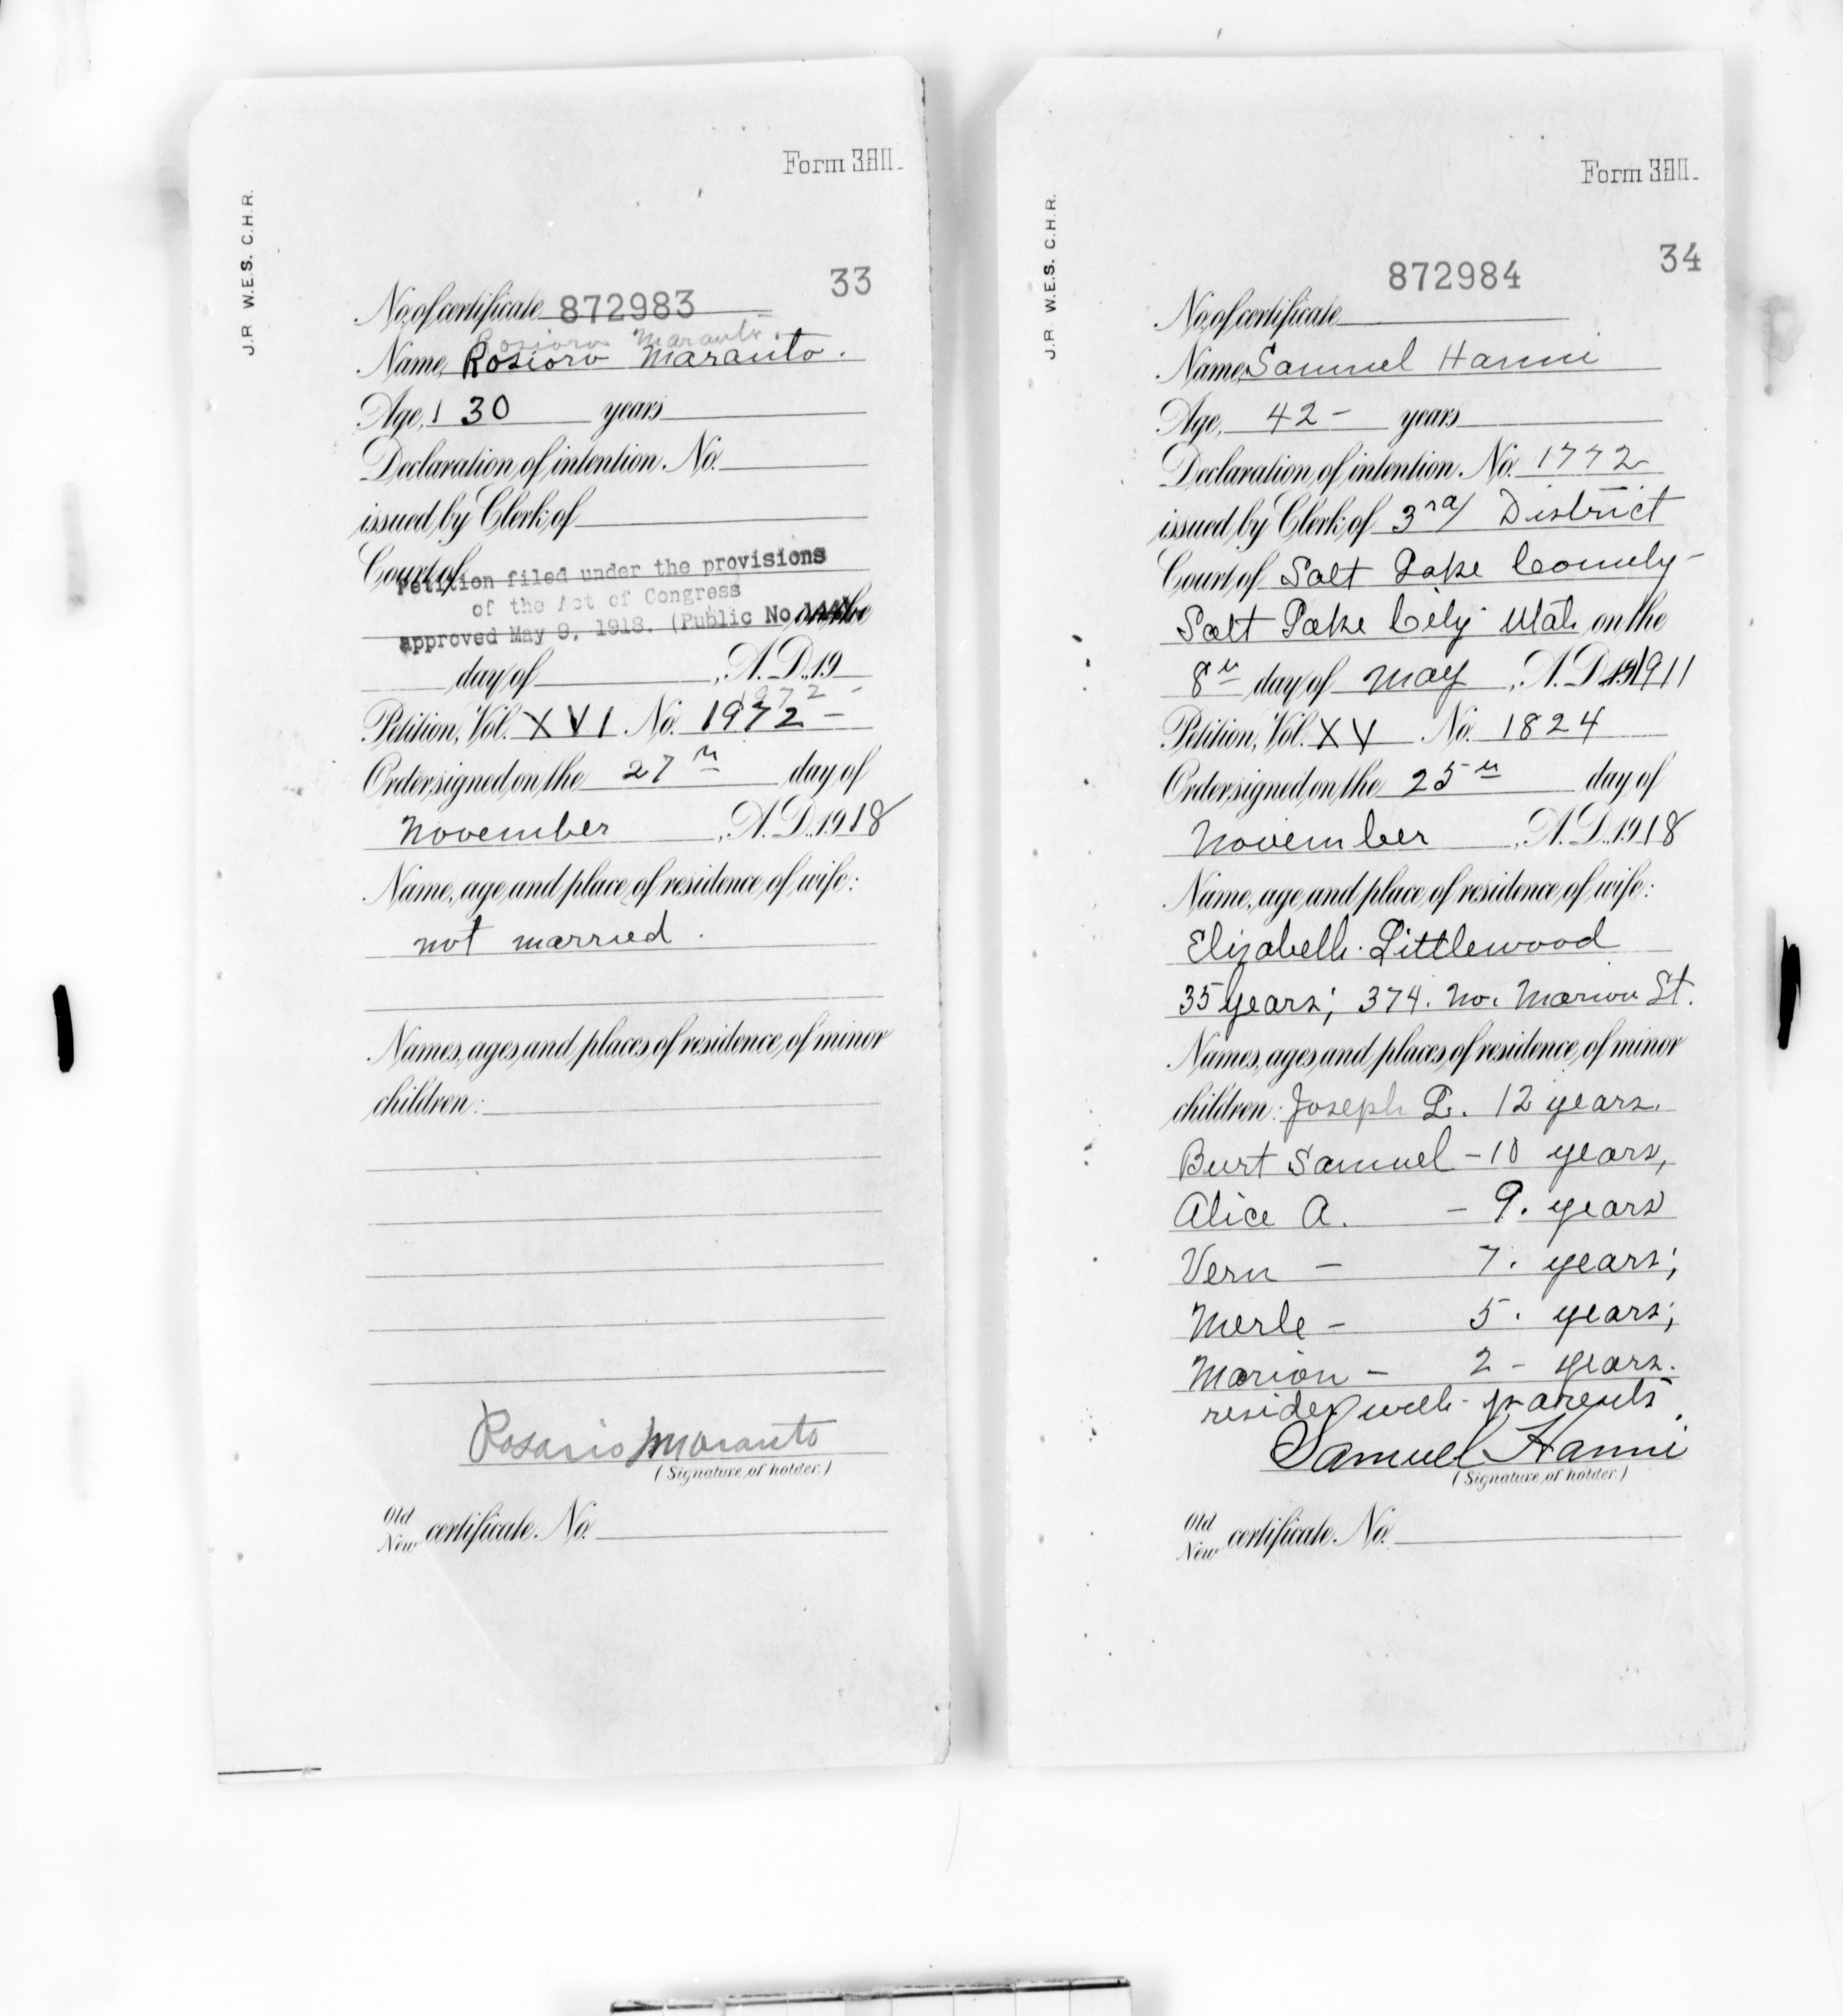 J.R. W.E.S. C.H.R.
33
No. of certificate 872983
Rosioro Maranto.
Name, Rosioro Maranto.
Age, 30 years
Declaration of intention No.
issued by Clerk of
Court of
Petition filed under the provisions
of the Act of Congress
approved May 9, 1918. (Public No. on the
day of , A.D. 19
1972
Petition, Vol. XVI No. 1972 -
Order signed on the 27th day of
November , A.D. 1918
Name, age and place of residence of wife:
not married.
Names, ages and places of residence of minor
children:
Rosario Maranto
(Signature of holder.)
Old
New certificate No.
J.R. W.E.S. C.H.R.
34
872984
No. of certificate
Name, Samuel Hanni
Age, 42 - years
Declaration of intention No. 1772
issued by Clerk of 3rd District
Court of Salt Lake County -
Salt Lake City Utah on the
8th day of May , A.D. 1911
Petition, Vol. XV No. 1824
Order signed on the 25th day of
November , A.D. 1918
Name, age and place of residence of wife:
Elizabeth Littlewood
35 years; 374. No. Marion St.
Names, ages and places of residence of minor
children: Joseph L. 12 years.
Burt Samuel - 10 years,
Alice A. - 9. years
Vern - 7. years;
Merle - 5. years;
Marion - 2 - years.
reside with parents.
Samuel Hanni
(Signature of holder.)
Old
New certificate No.